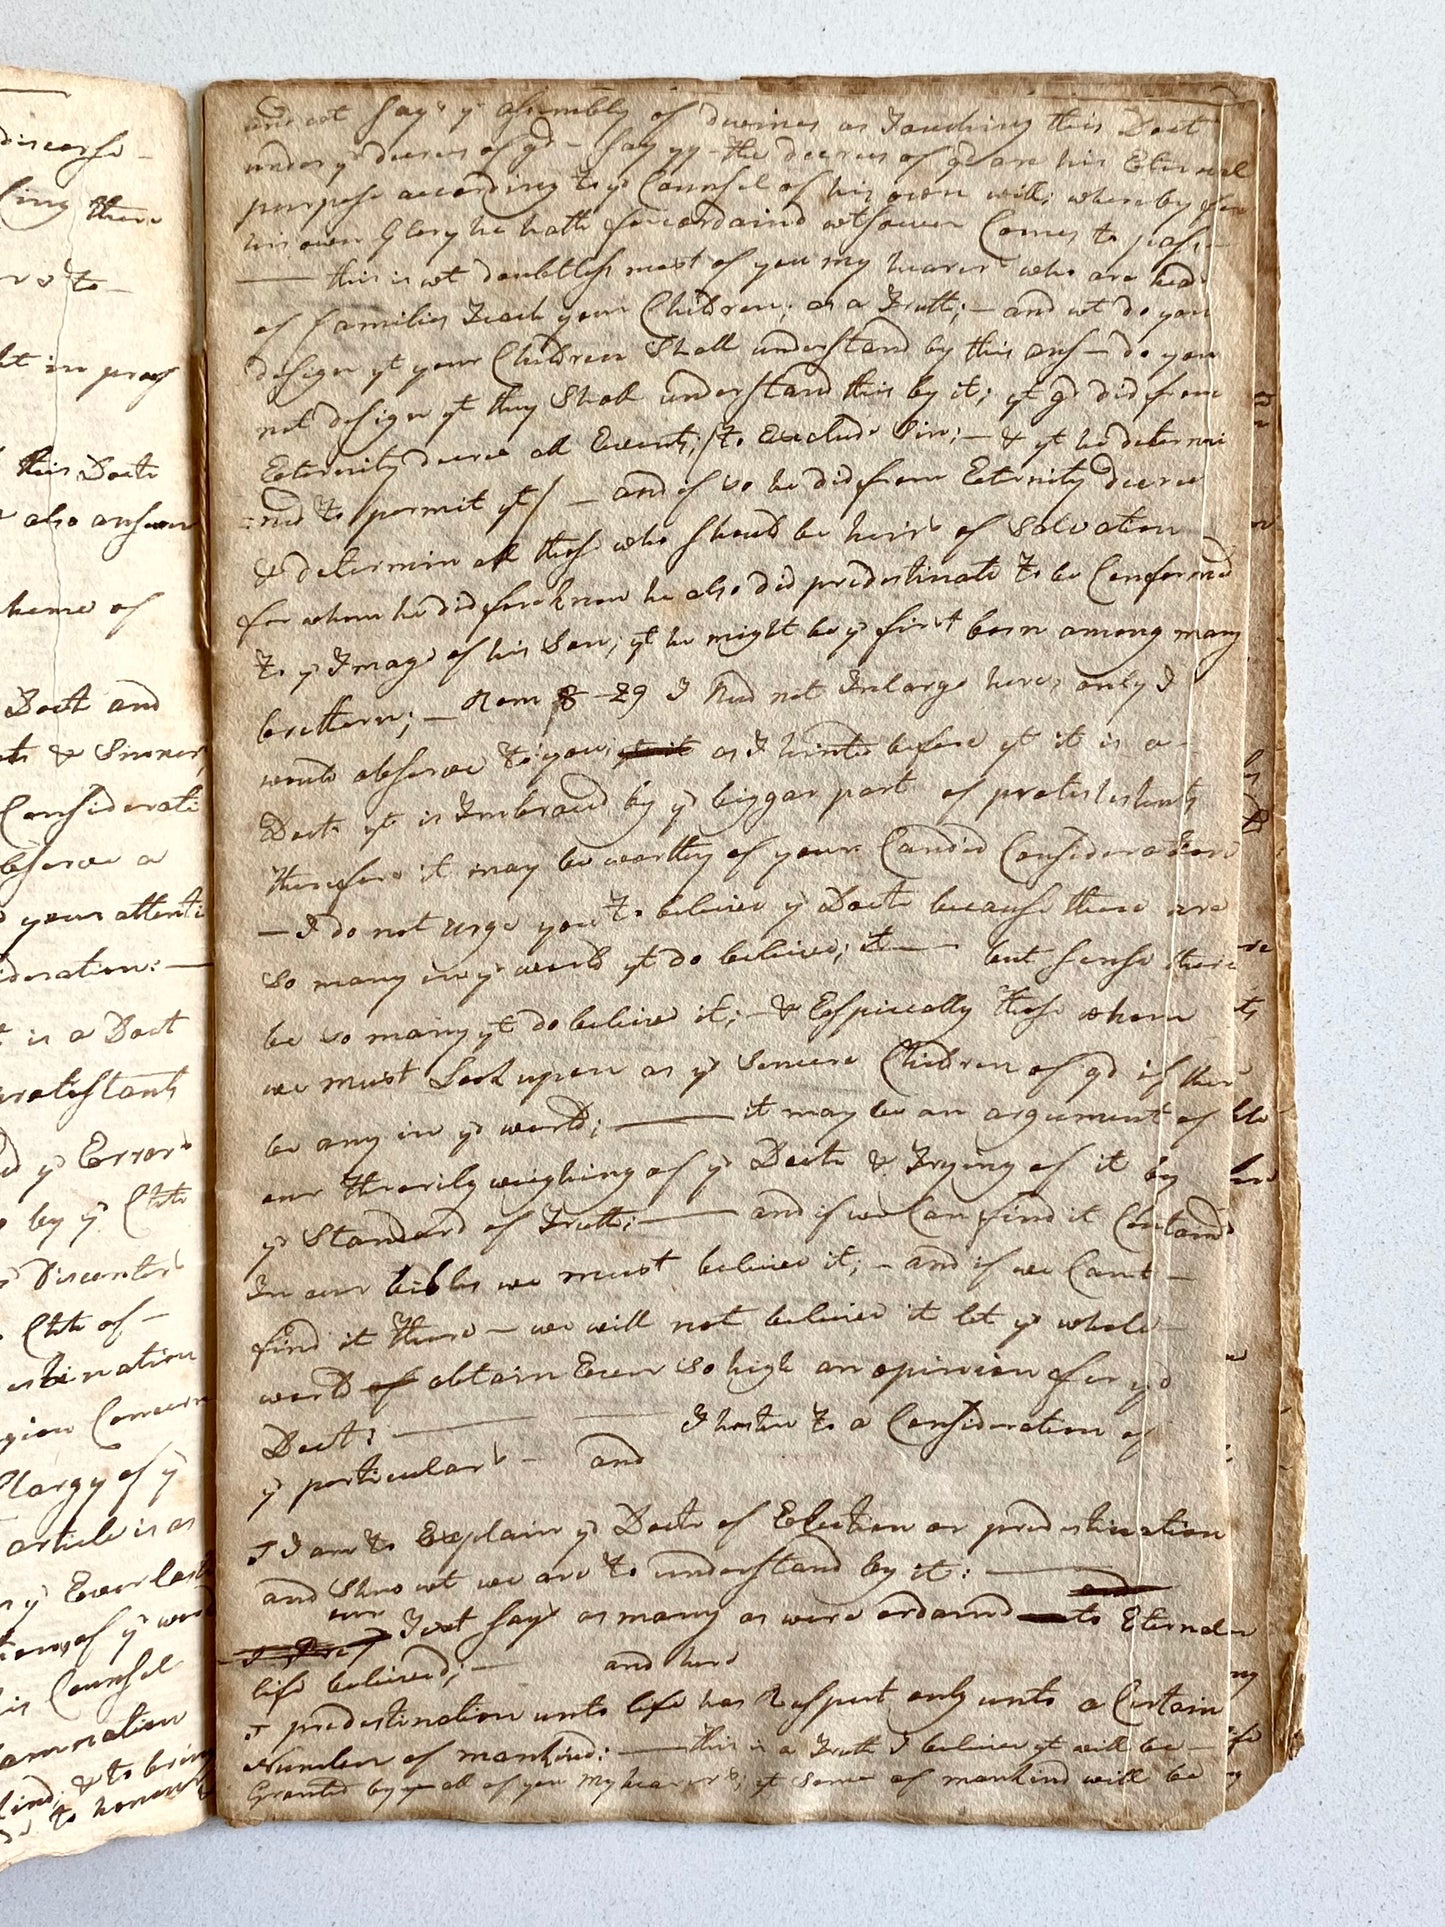 discorse -
ling there
to -
ht in prag
this Doct
also answer
heme of
Doct and
& Sinner,
Considerati
observe a
d your attenti
ideration: —
t is a Doct
protestants
yᵉ Errors
by yᵉ Chh
Discenters
Chh of -
estination
igion Concern
Clargy of yᵉ
article is as
yᵉ Everlast
of yᵉ wor
is Counsel
damnation
kind, & to bring
to honour
and wt says yᵉ assembly of divines as Touching this Doct
under yᵉ decrees of gd - say yy - the decrees of gd are his Eternal
purpose according to yᵉ Counsel of his own will; whereby for
his own Glory he hath foreordaind wtsoever Comes to pass -
— this is wt doubtless most of you my hearers who are heads
of families Teach your Children; as a Truth; - and wt do you
design yt your Children Shall understand by this ans - do you
not design yt they Shall understand this by it; yt gd did from
Eternity decree all Events; /to Exclude Sin; - & yt he determi
:ned to permit yt/ - and if so he did from Eternity decree
& determin all those who should be heirs of Salvation
for whom he did foreknow he also did predestinate to be Conformd
to yᵉ Image of his Son, yt he might be yᵉ first born among many
brethern; - Rom 8 - 29 I Need not Inlarge here, only I
would observe to you; as I hinted before yt it is a -
Doct yt is Imbraced by yᵉ biggar part of protestestants
therefore it may be worthy of your Candid Consideration
- I do not urge you to believe yᵉ Doct because there are
so many in yᵉ world yt do believe; it — but sense there
be so many yt do believe it; - & Espicually those whom
we must Look upon as yᵉ Sincere Children of gd if there
be any in yᵉ world; — it may be an argument of
our throrily weighing of yᵉ Doct & Trying of it by
yᵉ Standard of Truth; — and if we Can find it Containd
In our bibles we must believe it; - and if we Cant -
find it there - we will not believe it let yᵉ whole -
world of obtain Ever so high an opinion for yᵉ
Doct: — — I hasten to a Consideration of
yᵉ particulars - and
I I am to Explain yᵉ Doct of Election or predestination
and Shew wt we are to understand by it: — and
our Text says as many as were ordaind to Eternal
life believed; - and here
I predestination unto life has Respect only unto a Certain
Number of mankind: — this is a Truth I believe yt will be -
Granted by all of you My hearers; yt Some of mankind will be